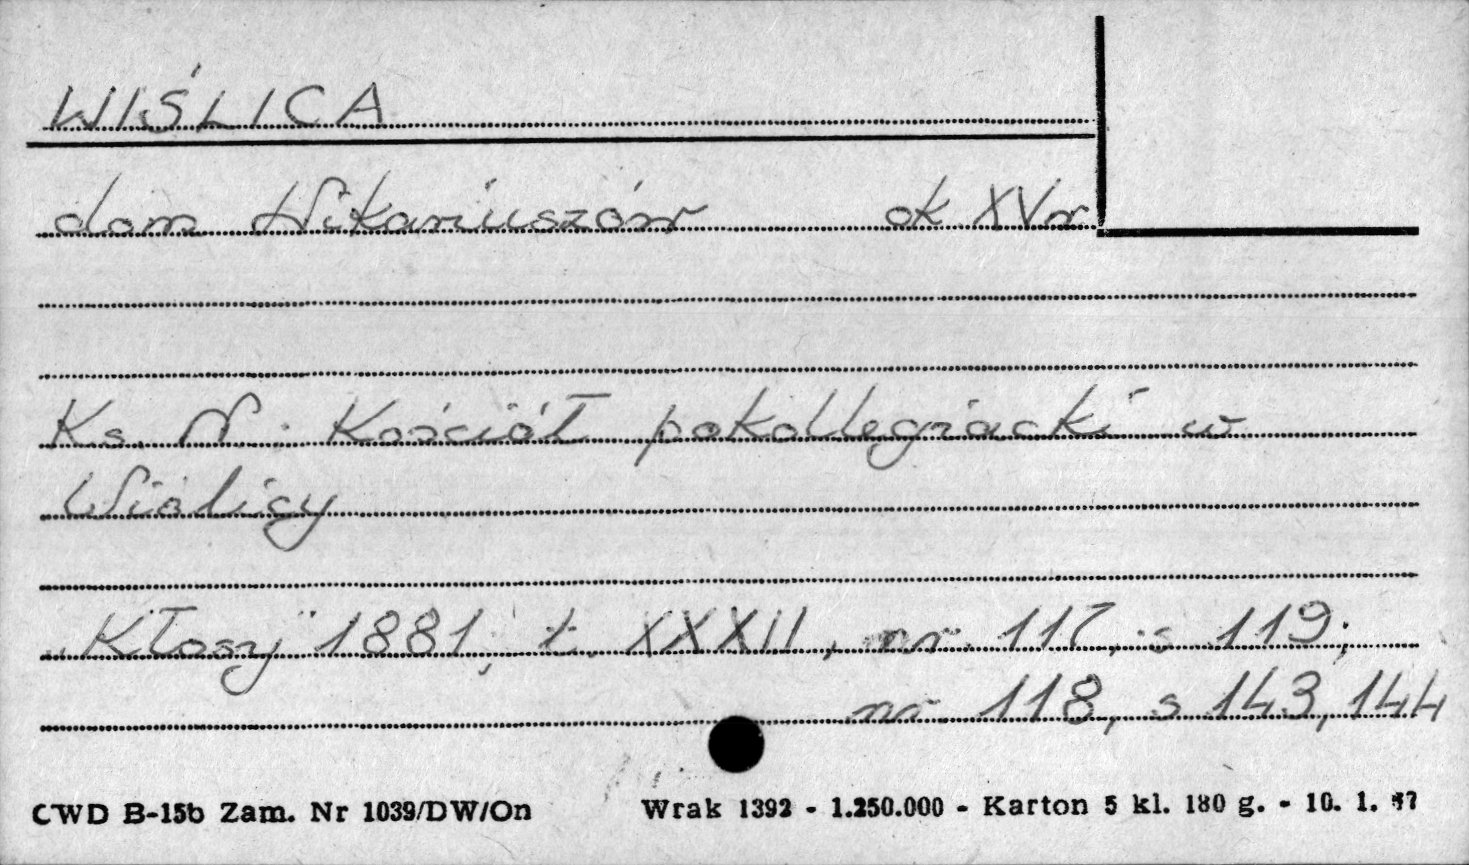 WIŚLICA
dom Wikariuszów ok XVw.
Ks. N. : Kościół pokollegiacki w
Wiślicy
"Kłosy" 1881, t. XXXII, nr. 117, s 119;
nr. 118, s 143, 144
CWD B-15b Zam. Nr 1039/DW/On Wrak 1392 - 1.250.000 - Karton 5 kl. 180 g. - 10. 1.